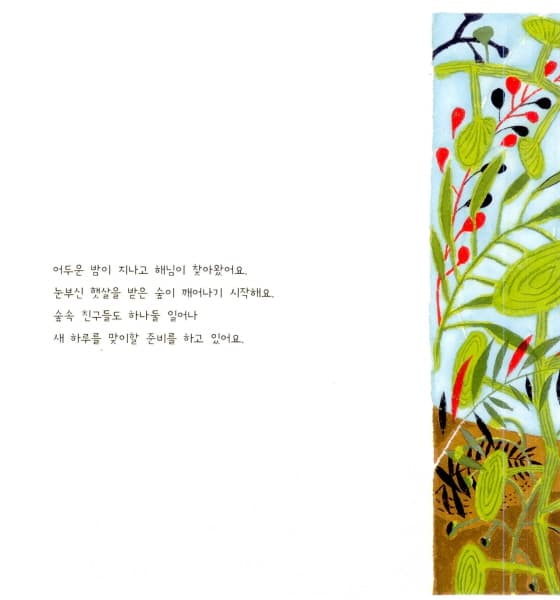 어두운 밤이 지나고 해님이 찾아왔어요.
눈부신 햇살을 받은 숲이 깨어나기 시작해요.
숲속 친구들도 하나둘 일어나
새 하루를 맞이할 준비를 하고 있어요.